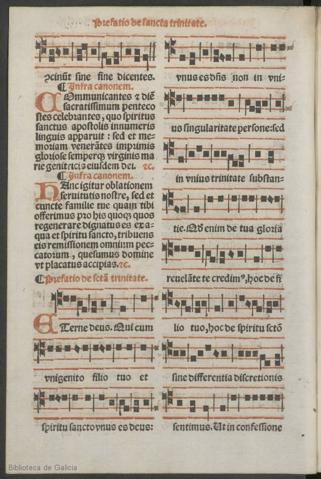 Prefatio de sancta trinitate.
ↄcinūt sine fine dicentes.
¶ Infra canonem.
COmmunicantes ⁊ diē
sacratissimum penteco
stes celebrantes, quo spiritus
sanctus apostolis innumeris
linguis apparuit: sed et me-
moriam venerātes imprimis
gloriose semperqȝ virginis ma
rie genitrici⁹ eiusdem dei. ⁊c.
¶ Infra canonem.
HAnc igitur oblationem
seruitutis nostre, sed et
cuncte familie tue quam tibi
offerimus pro his quoqȝ quos
regenerare dignatus es ex a-
qua et spiritu sancto, tribuens
eis remissionem omnium pec-
catorum, quesumus domine
vt placatus accipias. ⁊c.
¶ Prefatio de sctā trinitate.
ETerne deus. Qui cum
vnigenito filio tuo et
spiritu sancto vnus es deus:
vnus es dñs non in vni-
us singularitate persone: sed
in vnius trinitate substan-
tie. Qd enim de tua gloria
reuelāte te credim⁹, hoc de fi
lio tuo, hoc de spiritu sctō
sine differentia discretionis
sentimus. Ut in confessione
Biblioteca de Galicia